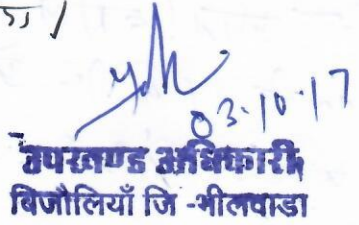 03.10.17
उपखण्ड अधिकारी
बिजौलियाँ जि -भीलवाडा